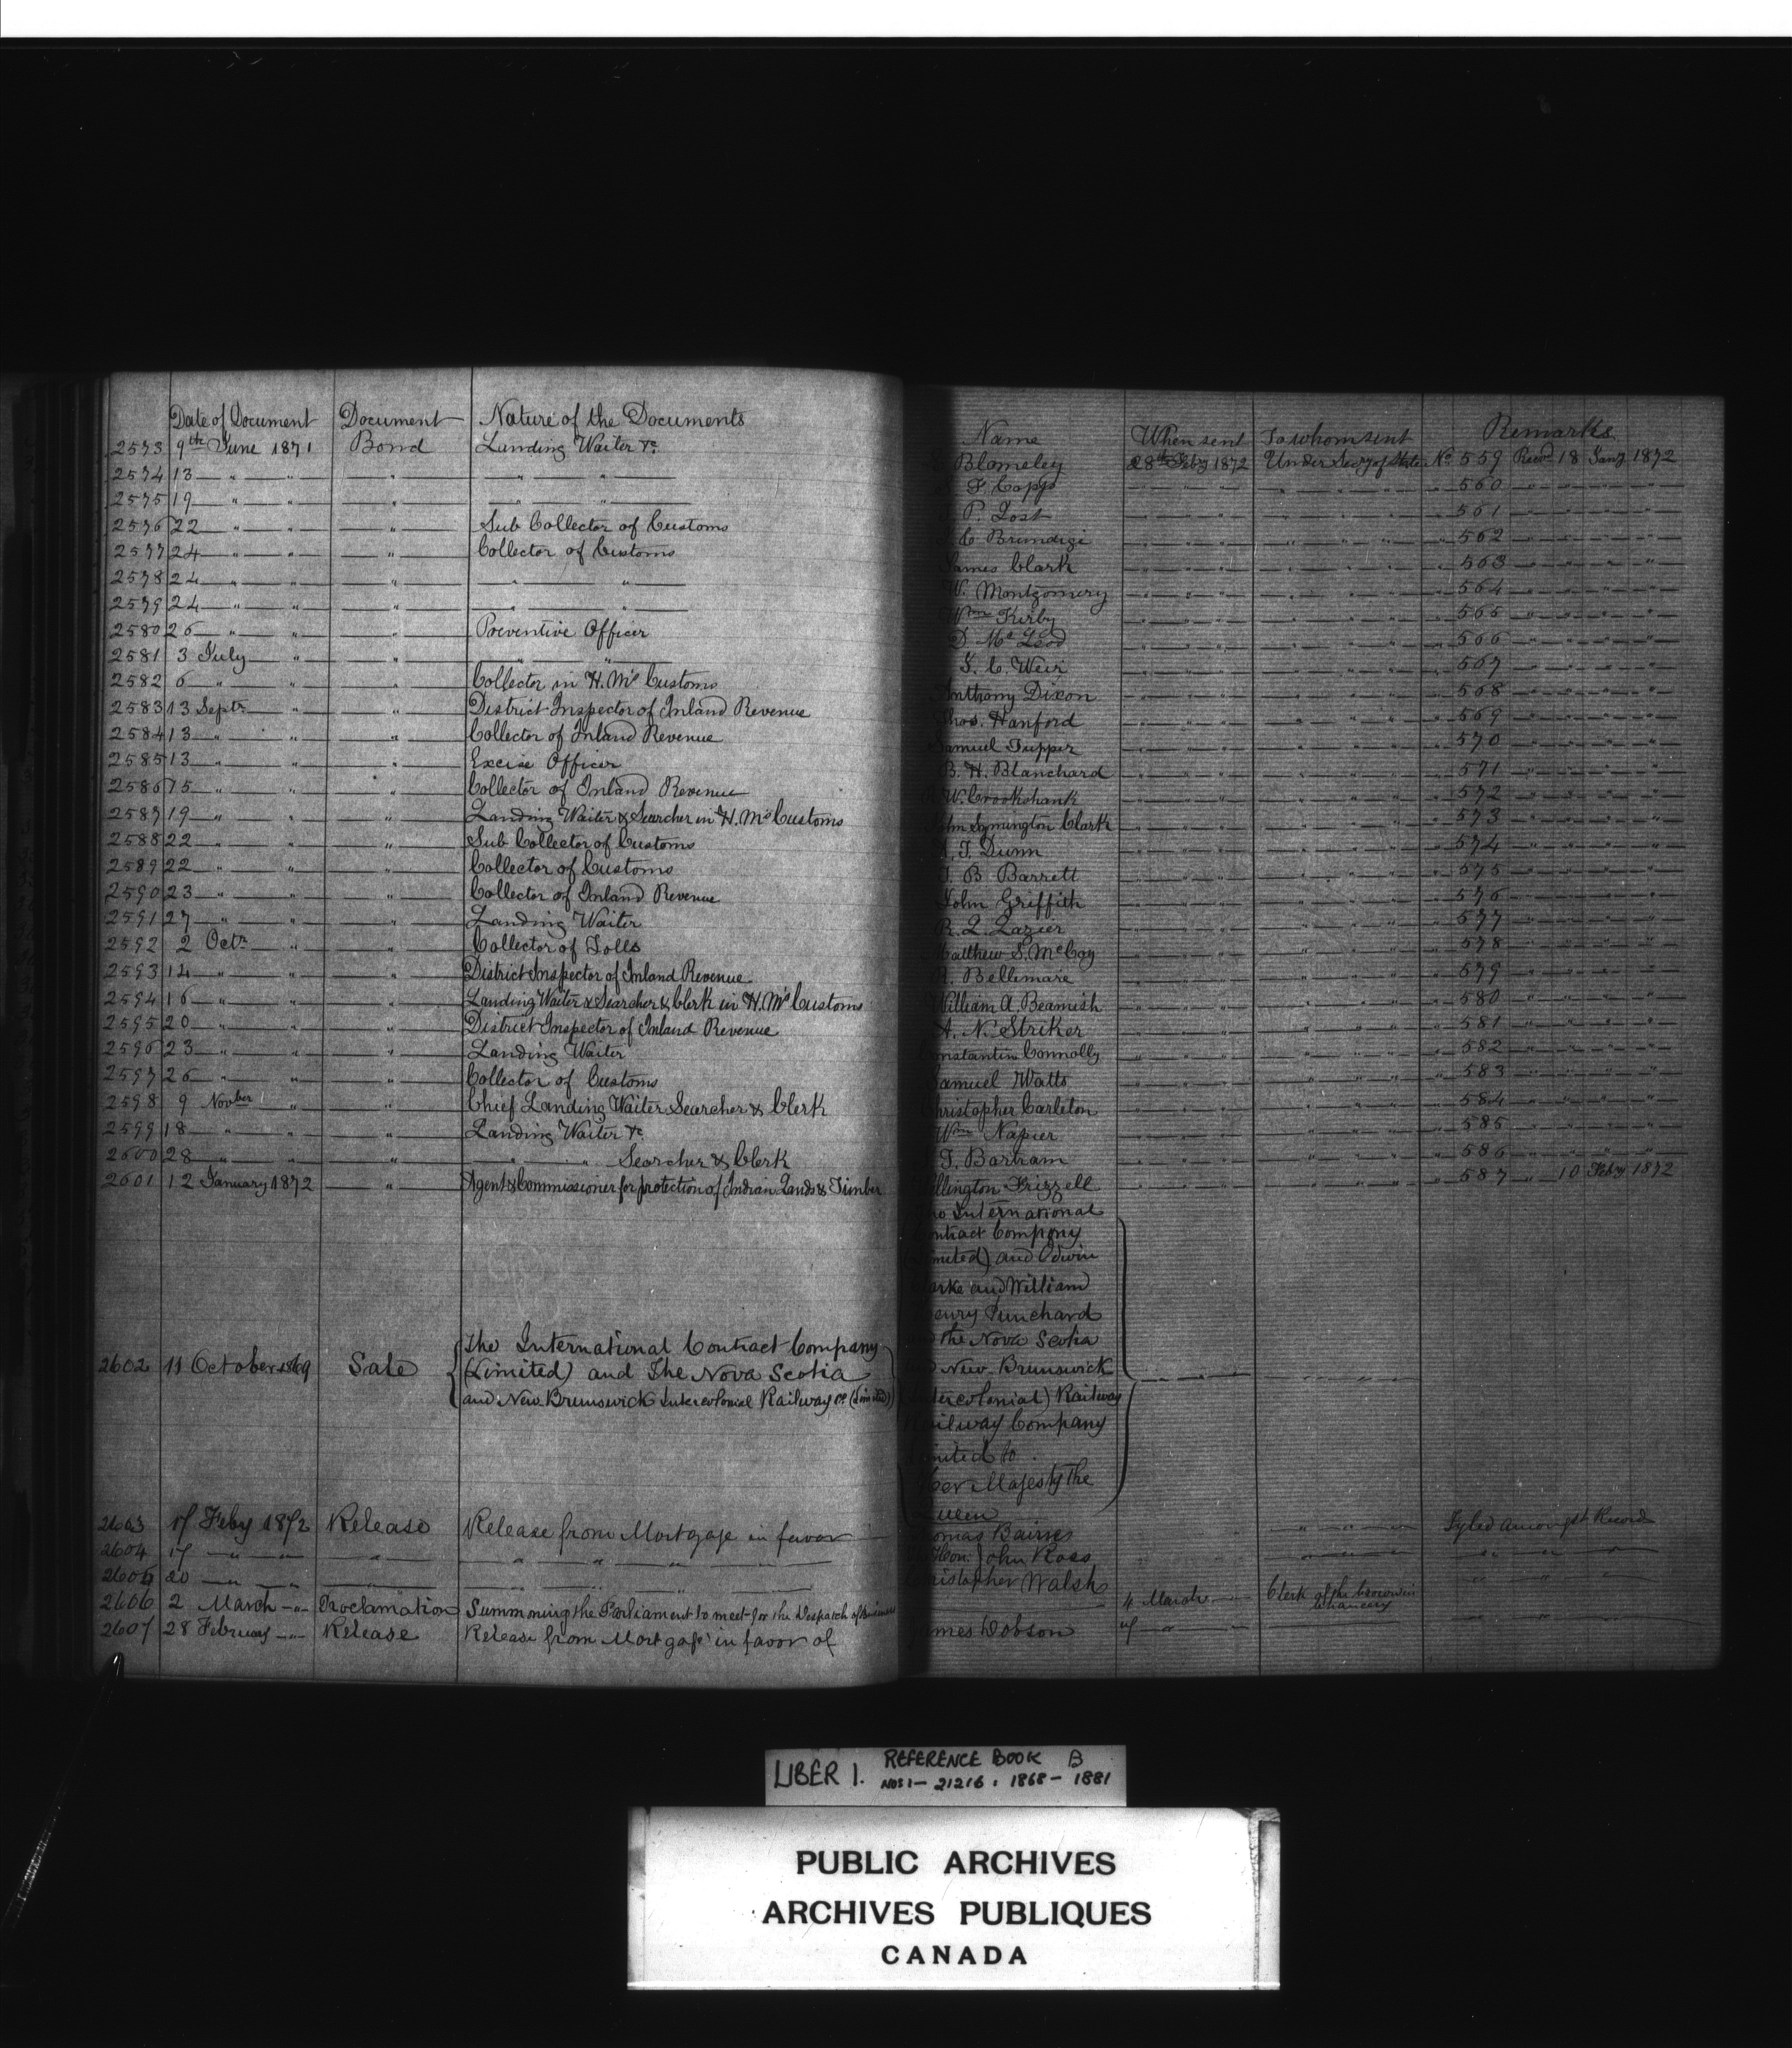 Date of Document Document Nature of the Documents Name When sent To whom sent Remarks
2573 9th June 1871 Bond Landing Waiter &c Blomeley 28th Feby 1872 Under Secy of State No 559 Recd 18 Jany 1872
2574 13 " " " " " F. Copp " " " " " " " 560 " " " "
2575 19 " " " " " P. Lost " " " " " " " 561 " " " "
2576 22 " " " Sub Collector of Customs C Brundige " " " " " " " 562 " " " "
2577 24 " " " Collector of Customs James Clark " " " " " " " 563 " " " "
2578 24 " " " " " W. Montgomery " " " " " " " 564 " " " "
2579 24 " " " " " Wm Kirby " " " " " " " 565 " " " "
2580 26 " " " Preventive Officer D. McLeod " " " " " " " 566 " " " "
2581 3 July " " " " C. Weir " " " " " " " 567 " " " "
2582 6 " " " Collector in H. M's Customs Anthony Dixon " " " " " " " 568 " " " "
2583 13 Septr " " District Inspector of Inland Revenue Thos. Hanford " " " " " " " 569 " " " "
2584 13 " " " Collector of Inland Revenue Samuel Tupper " " " " " " " 570 " " " "
2585 13 " " " Excise Officer B. H. Blanchard " " " " " " " 571 " " " "
2586 15 " " " Collector of Inland Revenue W. Crookshank " " " " " " " 572 " " " "
2587 19 " " " Landing Waiter & Searcher in H. M's Customs John Symington Clark " " " " " " " 573 " " " "
2588 22 " " " Sub Collector of Customs T. Dunn " " " " " " " 574 " " " "
2589 22 " " " Collector of Customs B Barrett " " " " " " " 575 " " " "
2590 23 " " " Collector of Inland Revenue John Griffith " " " " " " " 576 " " " "
2591 27 " " " Landing Waiter R. L. Lazier " " " " " " " 577 " " " "
2592 2 Octr " " Collector of Tolls Matthew S. McCoy " " " " " " " 578 " " " "
2593 14 " " " District Inspector of Inland Revenue Bellemare " " " " " " " 579 " " " "
2594 16 " " " Landing Waiter & Searcher & Clerk in H. M's Customs William A. Beamish " " " " " " " 580 " " " "
2595 20 " " " District Inspector of Inland Revenue N. Striker " " " " " " " 581 " " " "
2596 23 " " " Landing Waiter Constantin Connolly " " " " " " " 582 " " " "
2597 26 " " " Collector of Customs Samuel Watts " " " " " " " 583 " " " "
2598 9 Novber " " Chief Landing Waiter Searcher & Clerk Christopher Carleton " " " " " " " 584 " " " "
2599 18 " " " Landing Waiter &c Wm Napier " " " " " " " 585 " " " "
2600 28 " " " " " Searcher & Clerk Bartram " " " " " " " 586 " " " "
2601 12 January 1872 " Agent & Commissioner for protection of Indian Lands & Timber Wellington Frizzell " " " " " " " 587 " 10 Feby 1872
The International
Contract Company
(Limited) and Edwin
Clarke and William
Henry Punchard
and the Nova Scotia
and New Brunswick
(Intercolonial) Railway
Railway Company
Limited to
Her Majesty the
Queen
2602 11 October 1869 Sale The International Contract Company
(Limited) and The Nova Scotia
and New Brunswick Intercolonial Railway Co (Limited) " " " " " "
2603 17 Feby 1872 Release Release from Mortgage in favor Thomas Baines " " " Fyled amongst Records
2604 17 " " " " " " " Hon: John Ross " " " " " "
2605 20 " " " " " " Christopher Walsh " " "
2606 2 March " Proclamation Summoning the Parliament to meet for the Despatch of Business 4 March Clerk of the Crown in Chancery
2607 28 February " Release Release from Mortgage in favor of James Dobson " "
LIBER 1. REFERENCE BOOK B
NOS 1 - 21216 : 1868 - 1881
PUBLIC ARCHIVES
ARCHIVES PUBLIQUES
CANADA